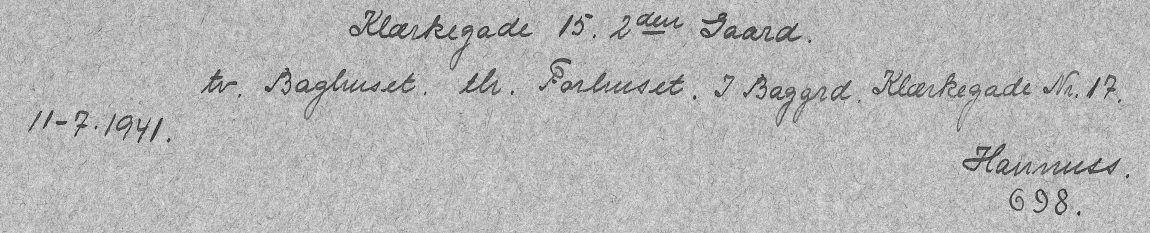 Klærkegade 15. 2den Gaard.
tv. Baghuset. th. Forhuset. I Baggrd. Klærkegade Nr. 17.
11-7.1941.
698.